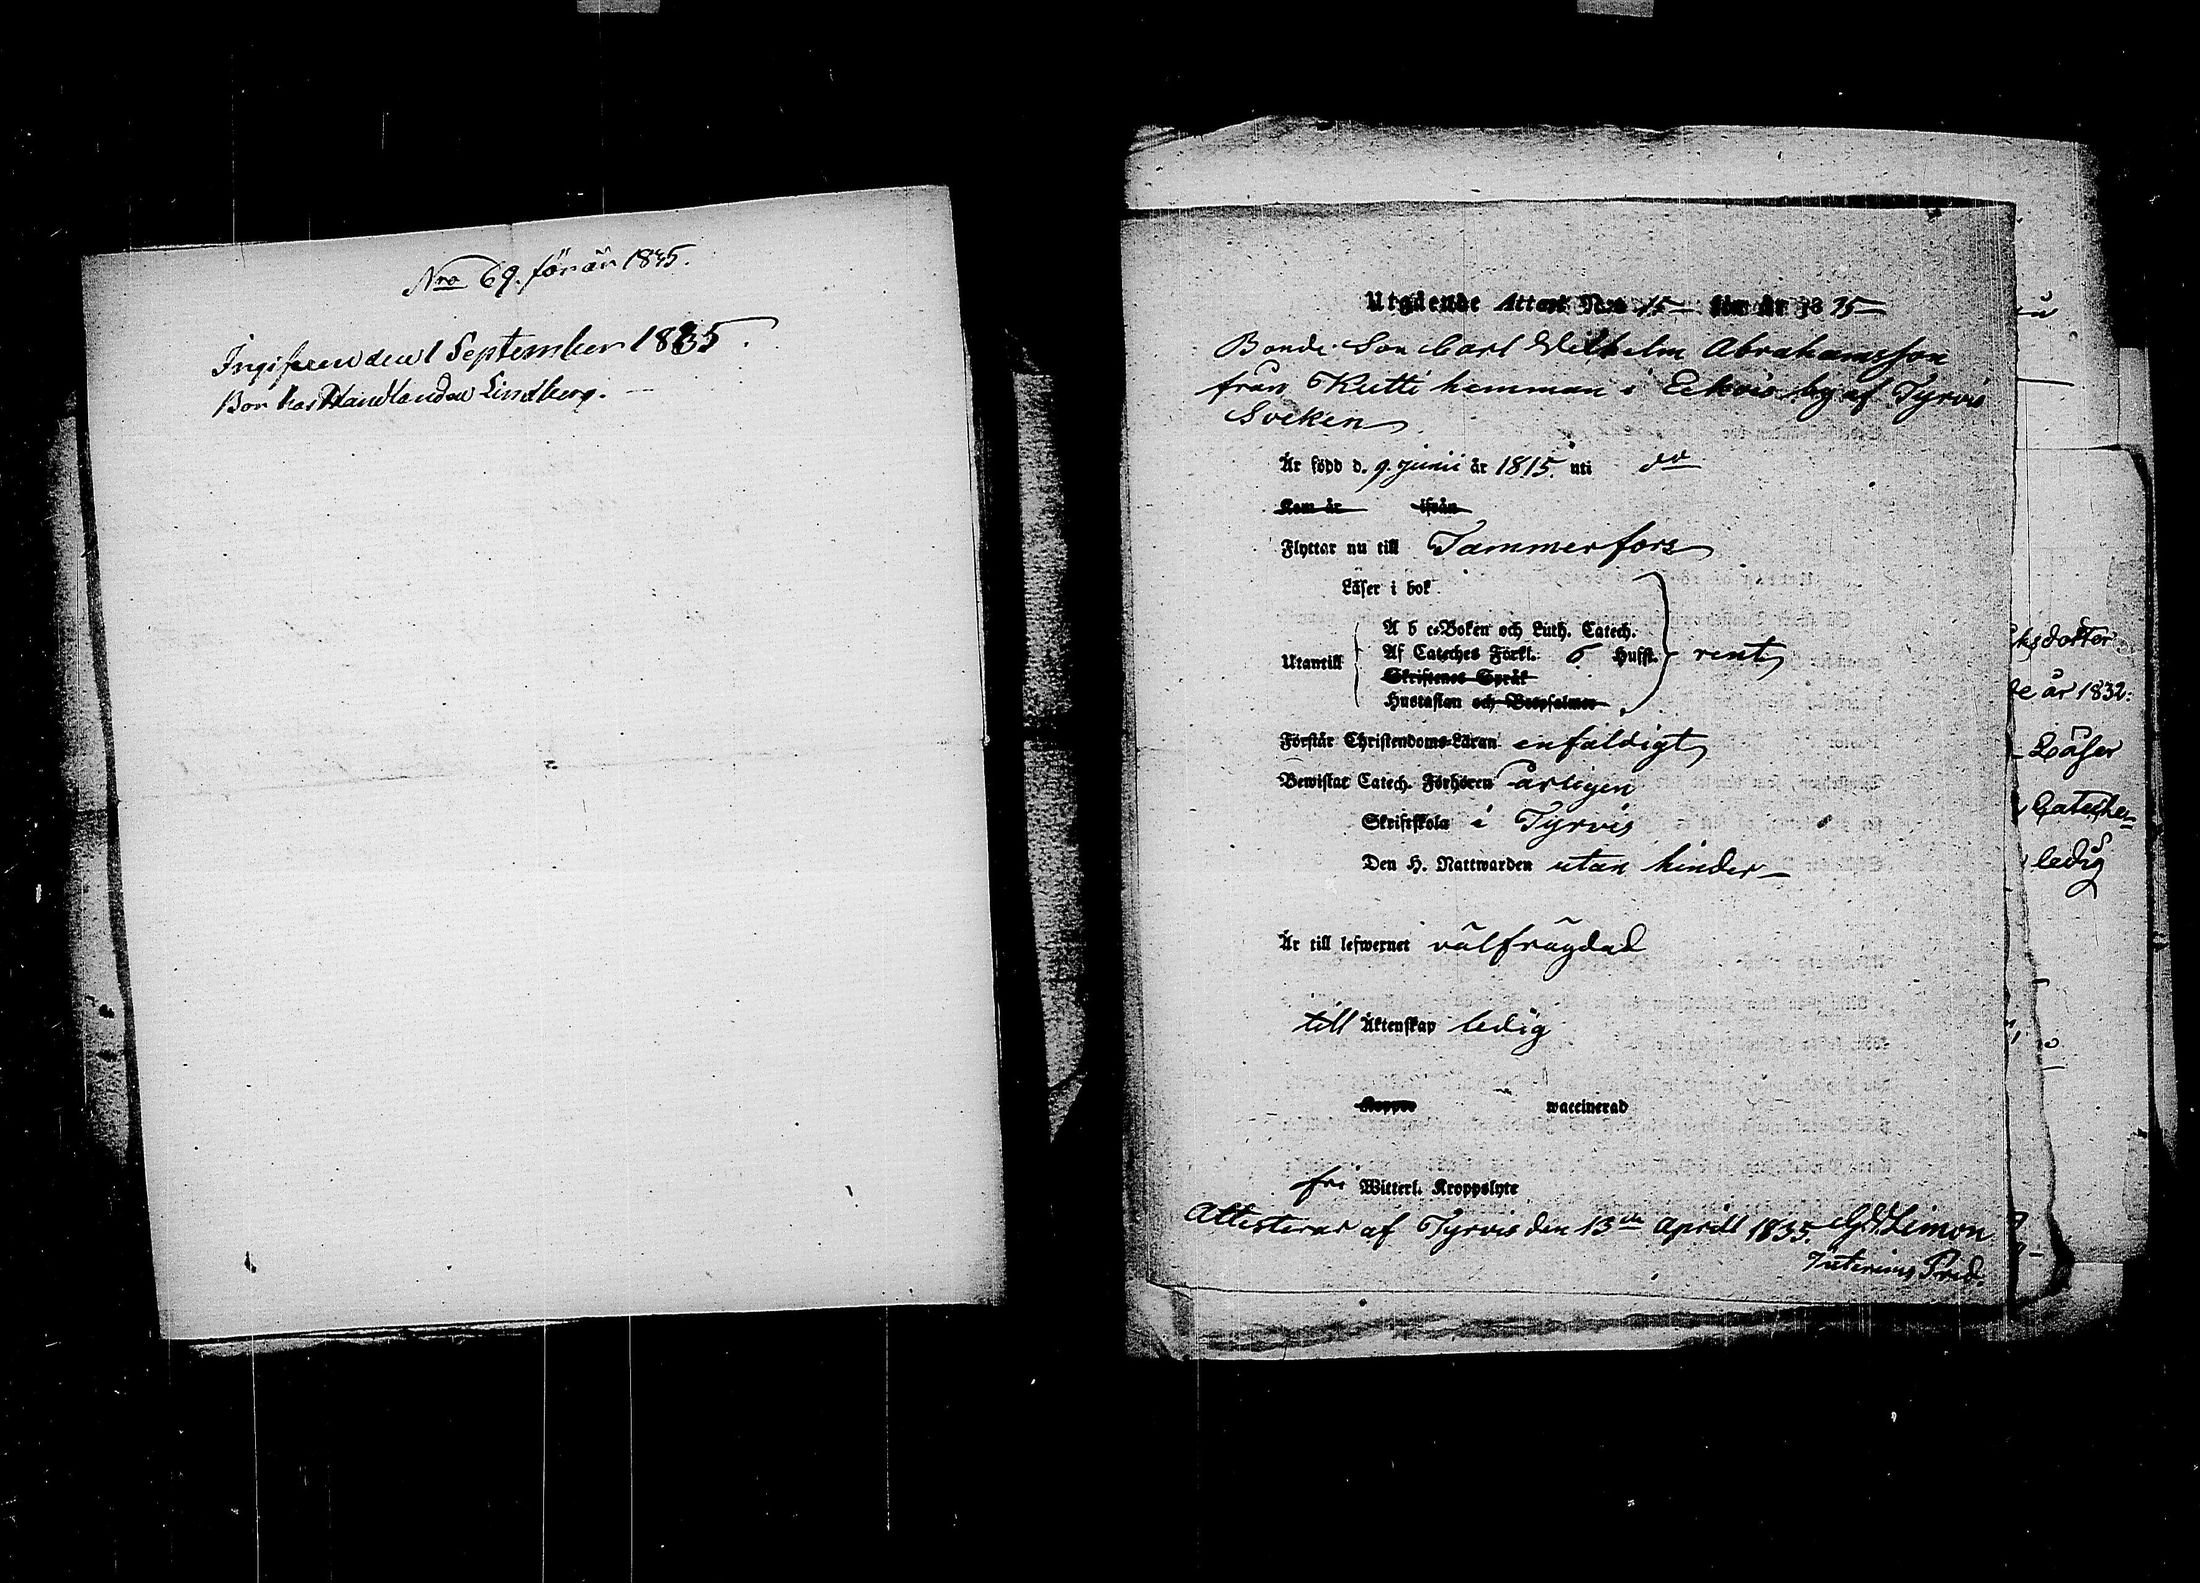 Nro 69. för år 1835.
Ingifven den 1 September 1835.
Bor hos Handlanden Lindberg.
Utgående Attest Nro 15 för År 1835
Bonde Son Carl Wilhelm Abrahamsson
från Kutti hemman i Ekois by af Tyrvis
Socken
Är född d. 9. Junii år 1815. uti do
Kom år ifrån
Flyttar nu till Tammerfors
Läser i bok
A b c-Boken och Luth. Catech.
Utantill Af Catches Förkl. 6 Hufst. rent
Skriftenes Språk
Hustaflan och Botpsalmer
Förstår Christendoms-Läran enfaldigt
Bewistat Catech. Förhören årligen
Skriftskola i Tyrvis
Den H. Nattwarden utan hinder
Är till lefwernet välfrägdad
till Äktenskap ledig
Koppor waccinerad
fri Witterl. Kroppslyte
Attesterar af Tyrvis den 13de Aprill 1835. Limon
Interims Pred.
dotter
år 1832.
Läser
Cateche-
ledig